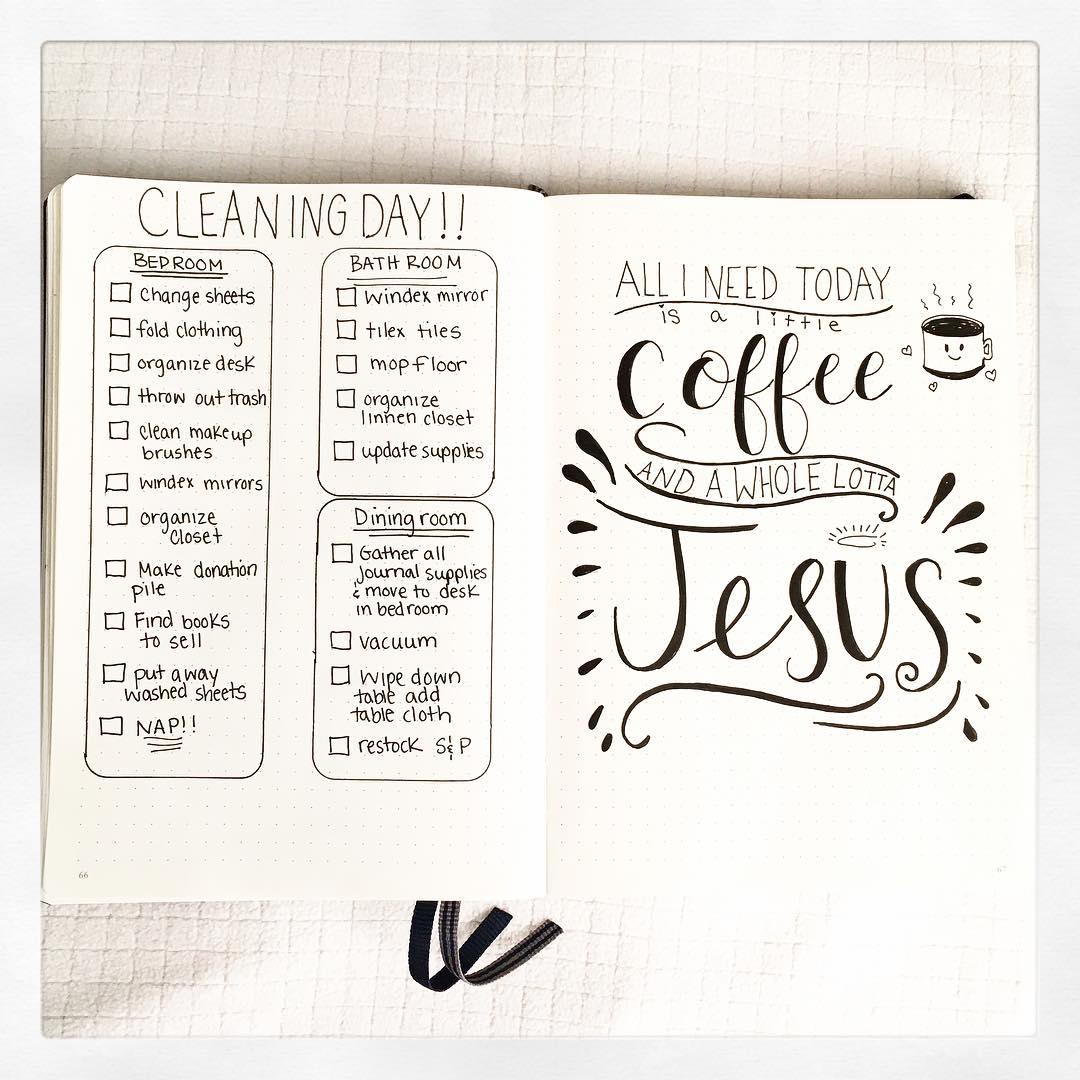 CLEANING DAY!!
BEDROOM
Change sheets
fold clothing
organize desk
throw out trash
clean makeup
brushes
windex mirrors
organize
closet
Make donation
pile
Find books
to sell
put away
washed sheets
NAP!!
BATHROOM
Windex mirror
tilex tiles
mop floor
organize
linnen closet
update supplies
Dining room
Gather all
journal supplies
& move to desk
in bedroom
vacuum
Wipe down
table add
table cloth
restock S&P
66
ALL I NEED TODAY
is a little
Coffee
AND A WHOLE LOTTA
Jesus
67